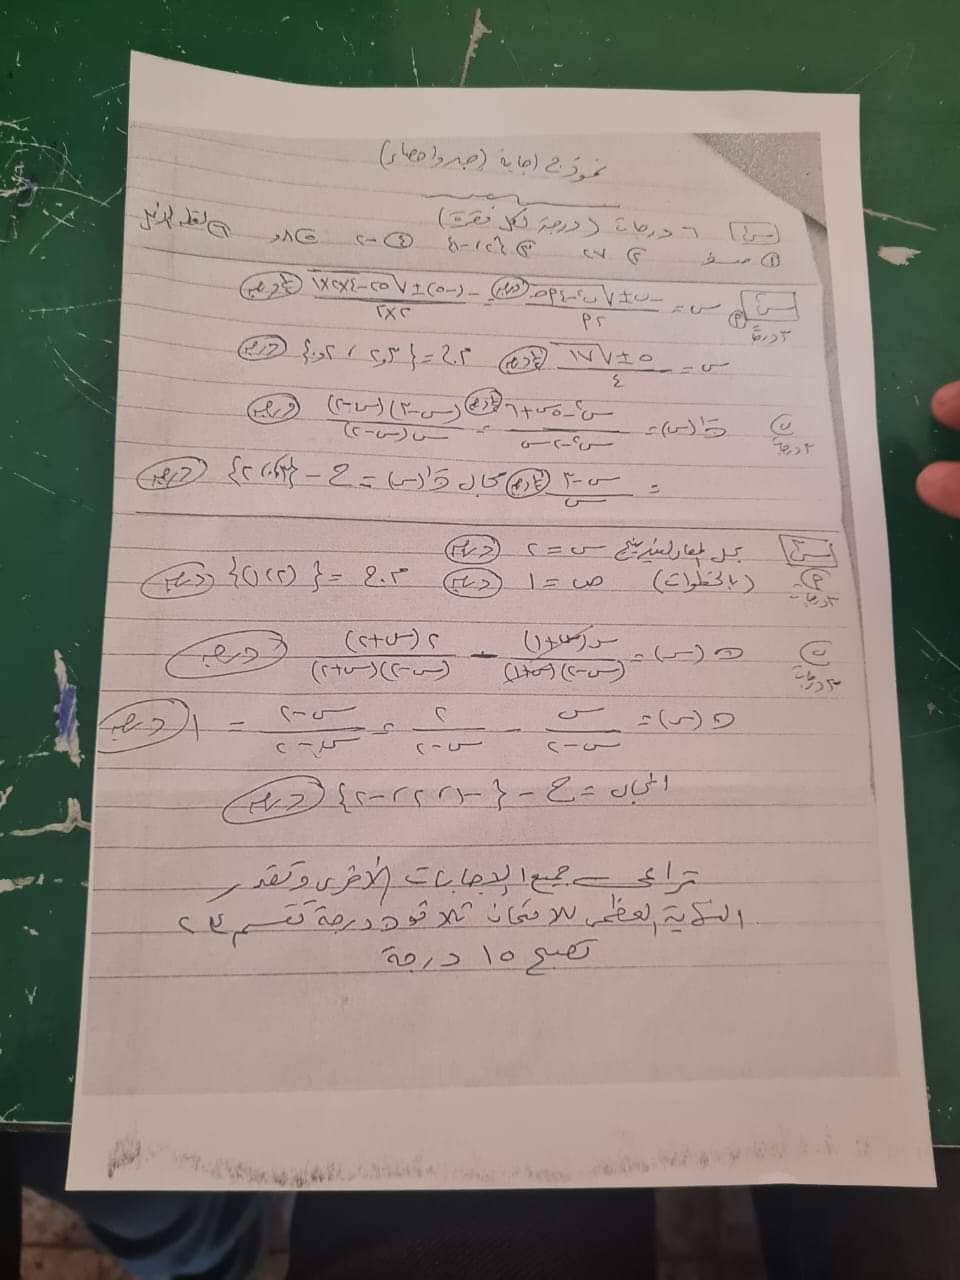 نموذج اجابة (جبر واحصاء)
س١ ٦ درجات (درجة لكل فقرة)
① صفر ② ٧٢ ③ {٢، -١} ④ -٢ ⑤ ٨, ⑥ نقطة الأصل
س٢ ٣ درجة (٩) س = (-ب ± √(ب٢ - ٤٩حـ)) / ٢٩ (درجة) = (-(-٥) ± √(٢٥ - ٤×٢×١)) / (٢×٢) (½ درجة)
س = (٥ ± √١٧) / ٤ (½ درجة) م.ح = {٢,٣ ، ٠,٢} (درجة)
ب ٣ درجة ن⁻¹(س) = (س٢ - ٥س + ٦) / (س٢ - ٢س) (½ درجة) = (س-٣)(س-٢) / س(س-٢) (درجة)
= (س-٣) / س (½ درجة) مجال ن⁻¹(س) = ح - {٣، ٠، ٢} (درجة)
س٣ بحل المعادلتين ينتج س = ٢ (درجة)
(٩) ٣ درجات (بالخطوات) ص = ١ (درجة) م.ح = {(٢، ١)} (درجة)
ب ٣ درجات ن(س) = س(س+١) / (س-٢)(س+١) - ٢(س+٢) / (س-٢)(س+٢) (درجة)
ن(س) = س / (س-٢) - ٢ / (س-٢) = (س-٢) / (س-٢) = ١ (درجة)
المجال = ح - {-١، ٢، -٢} (درجة)
تراعى جميع الإجابات الأخرى وتقدر
النهاية العظمى للامتحان ثلاثون درجة تقسم على ٢
تصبح ١٥ درجة